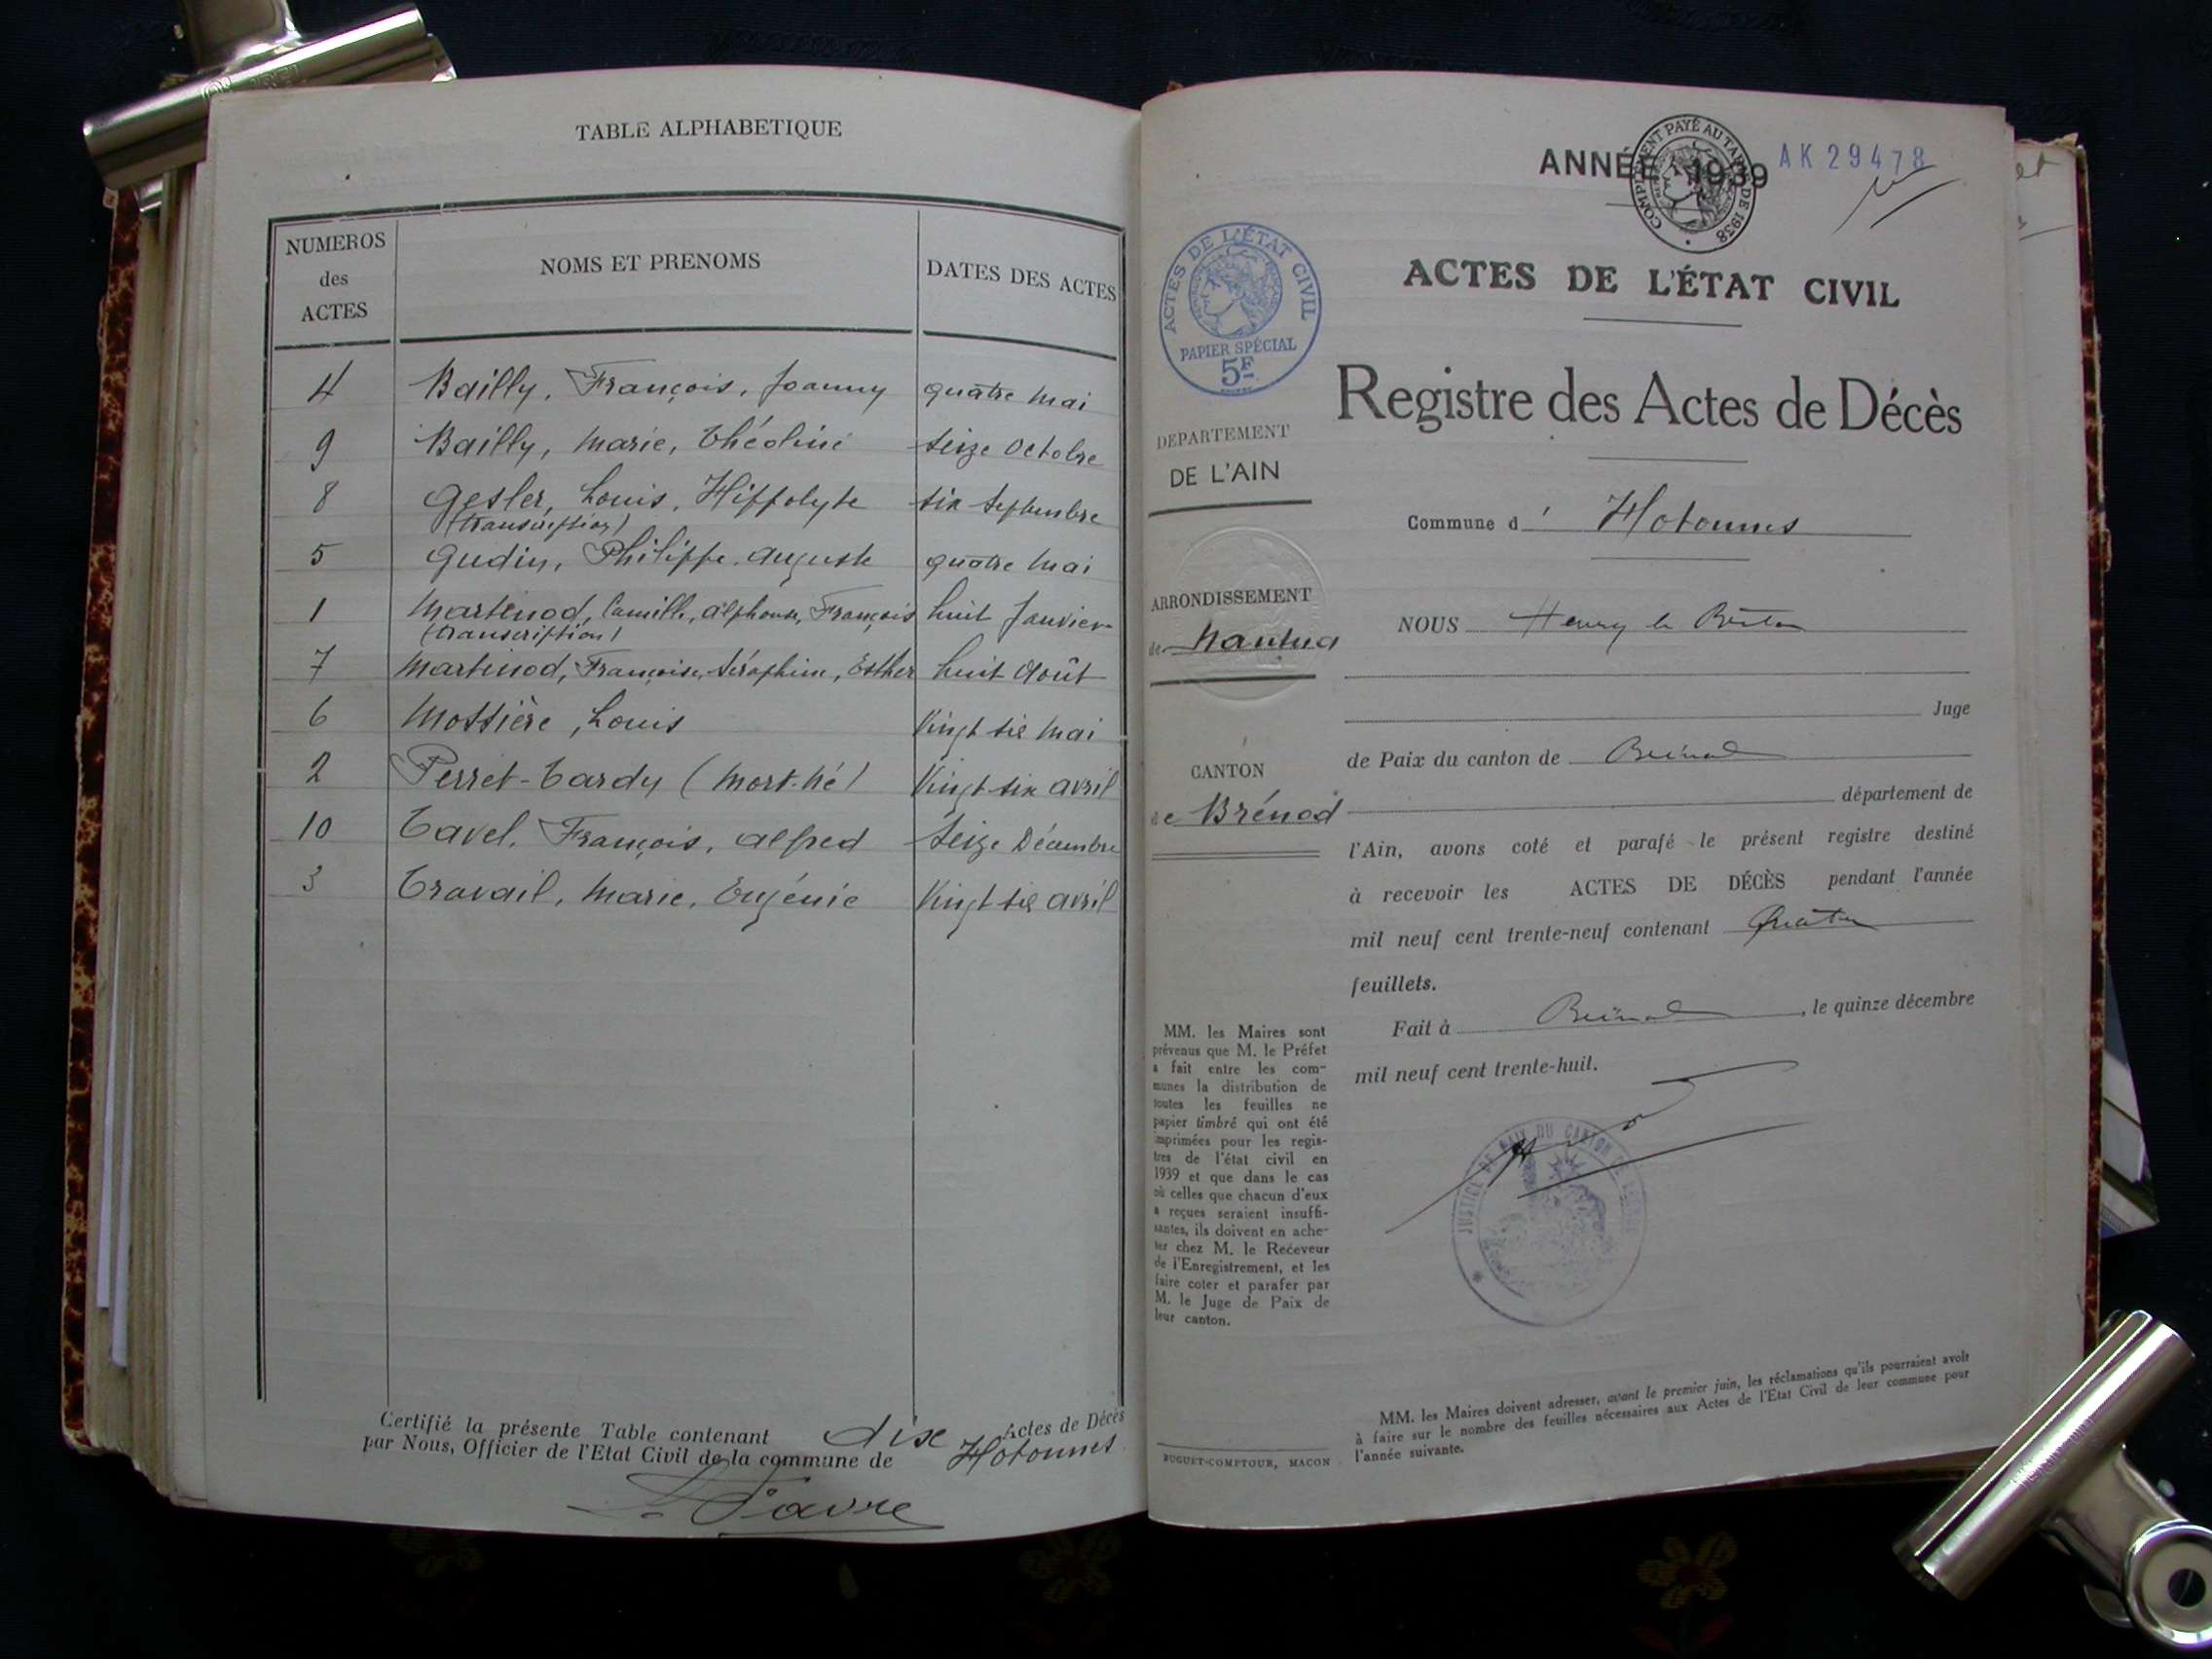 TABLE ALPHABETIQUE
NUMEROS des ACTES
NOMS ET PRENOMS
DATES DES ACTES
4 Bailly, François, Joanny quatre Mai
9 Bailly, Marie, Théoline seize Octobre
8 Gesler, Louis, Hippolyte six Septembre
(transcription)
5 Gudin, Philippe Auguste quatre Mai
1 Martinod, Camille, Alphonse, François huit Janvier
(transcription)
7 Martinod, Françoise, Séraphine, Esther huit Août
6 Mossière, Louis Vingt six Mai
2 Perret-Tardy (Mort-Né) Vingt six Avril
10 Tavel, François, Alfred Seize Décembre
3 Travail, Marie, Eugénie Vingt six Avril
Certifié la présente Table contenant dix Actes de Décès
par Nous, Officier de l'Etat Civil de la commune de Hotonnes
Favre
ANNÉE 1939
COMPLÉMENT PAYÉ AU TARIF DE 1938
AK 29478
ACTES DE L'ÉTAT CIVIL
PAPIER SPÉCIAL
5F
ACTES DE L'ÉTAT CIVIL
Registre des Actes de Décès
DEPARTEMENT
DE L'AIN
Commune d' Hotonnes
ARRONDISSEMENT
de Nantua
CANTON
de Brénod
NOUS Henry le Breton
Juge
de Paix du canton de Brénod
département de
l'Ain, avons coté et parafé le présent registre destiné
à recevoir les ACTES DE DÉCÈS pendant l'année
mil neuf cent trente-neuf contenant Quatre
feuillets.
Fait à Brénod, le quinze décembre
mil neuf cent trente-huit.
JUSTICE DE PAIX DU CANTON DE BRENOD
MM. les Maires sont
prévenus que M. le Préfet
a fait entre les com-
munes la distribution de
toutes les feuilles ne
papier timbré qui ont été
imprimées pour les regis-
tres de l'état civil en
1939 et que dans le cas
où celles que chacun d'eux
a reçues seraient insuffi-
santes, ils doivent en ache-
ter chez M. le Receveur
de l'Enregistrement, et les
faire coter et parafer par
M. le Juge de Paix de
leur canton.
BUGUET-COMPTOUR, MACON
MM. les Maires doivent adresser, avant le premier juin, les réclamations qu'ils pourraient avoir
à faire sur le nombre des feuilles nécessaires aux Actes de l'Etat Civil de leur commune pour
l'année suivante.